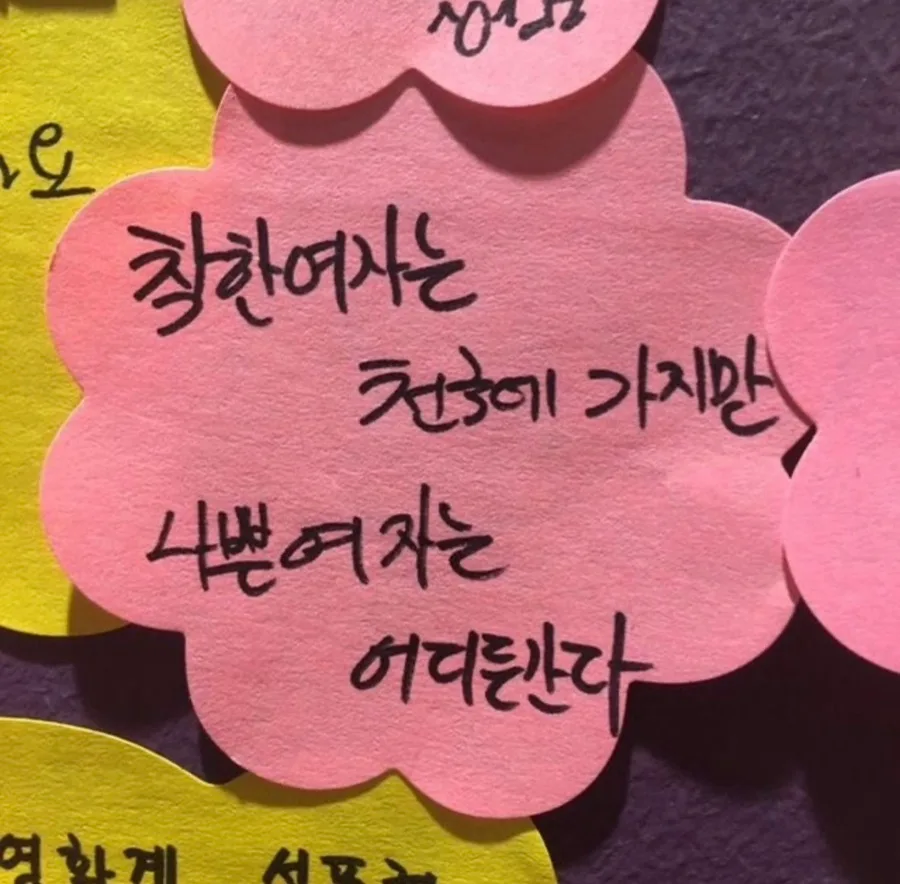 요
착한여자는
천국에 가지만
나쁜여자는
어디든간다
영화계 성폭력